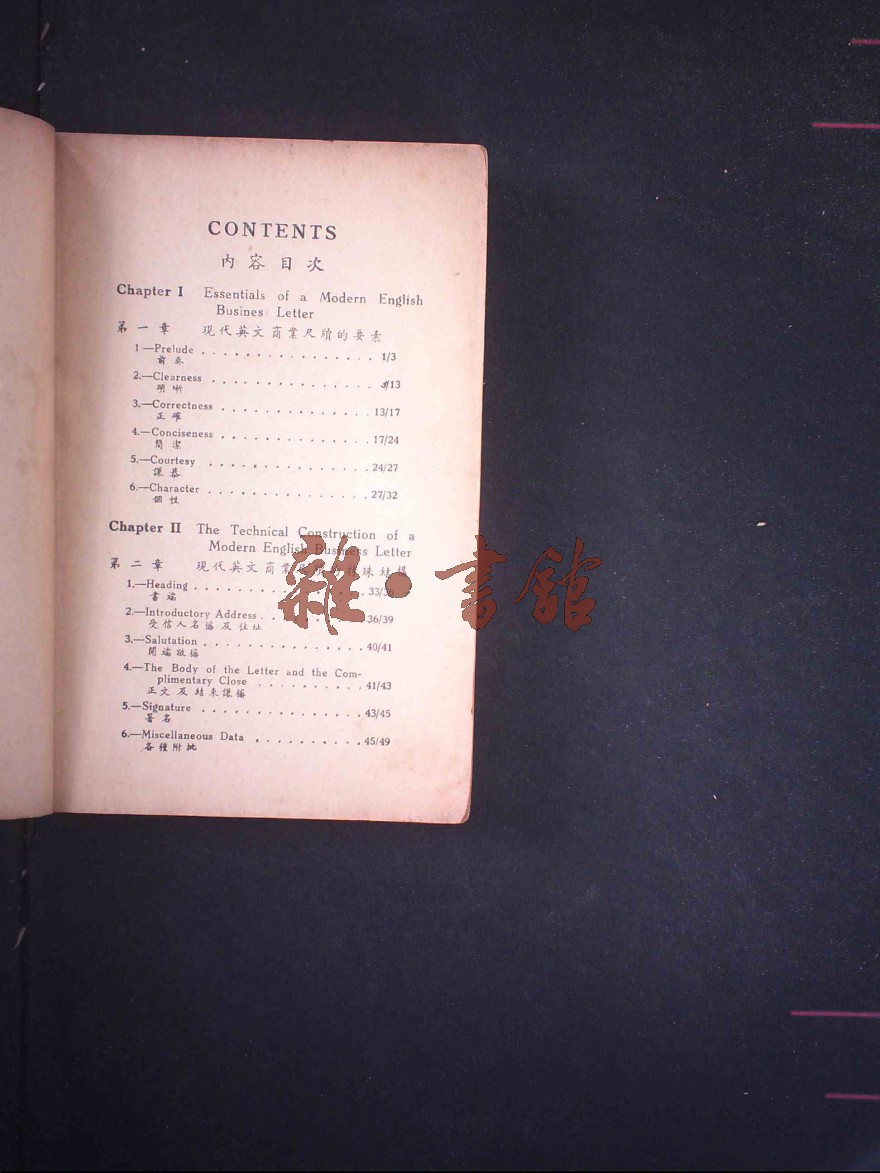 CONTENTS
內容目次
Chapter I Essentials of a Modern English
Busines Letter
第一章 現代英文商業尺牘的要素
1—Prelude . . . . . . . . . . . . . . . . 1/3
前奏
2.—Clearness . . . . . . . . . . . . . . . /13
明晰
3.—Correctness . . . . . . . . . . . . . . 13/17
正確
4.—Conciseness . . . . . . . . . . . . . . 17/24
簡潔
5.—Courtesy . . . . . . . . . . . . . . . 24/27
謙恭
6.—Character . . . . . . . . . . . . . . . 27/32
個性
Chapter II The Technical Construction of a
Modern English Business Letter
第二章 現代英文商業尺牘 結構
1.—Heading . . . . . . . . . . . . . . . . 33/36
書端
2.—Introductory Address . . . . . . . . . . 36/39
受信人名稱及住址
3.—Salutation . . . . . . . . . . . . . . . 40/41
開端敬稱
4.—The Body of the Letter and the Com-
plimentary Close . . . . . . . . . . 41/43
正文及結束謙稱
5.—Signature . . . . . . . . . . . . . . . 43/45
署名
6.—Miscellaneous Data . . . . . . . . . . 45/49
各種附批
雜·書館